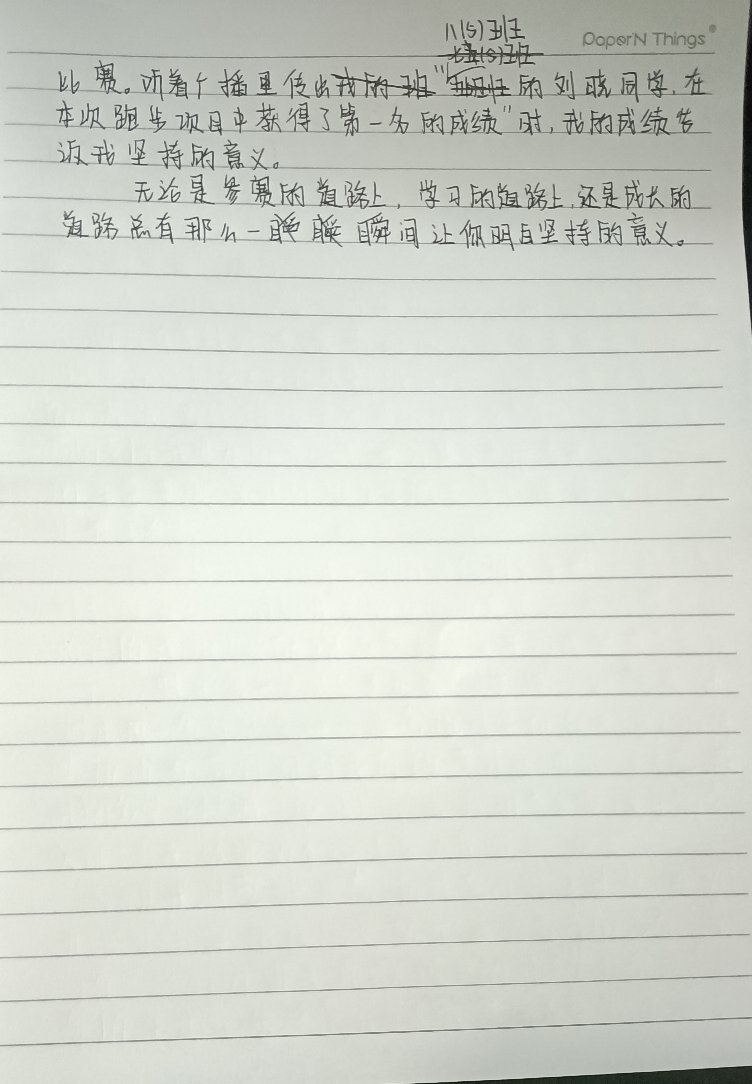 八(5)班
PaperN Things
比赛。听着广播里传出我的班"的刘晓同学,在
本次跑步项目中获得了第一名的成绩"时,我的成绩告
诉我坚持的意义。
无论是参赛的道路上,学习的道路上,还是成长的
道路总有那么一瞬间让你明白坚持的意义。